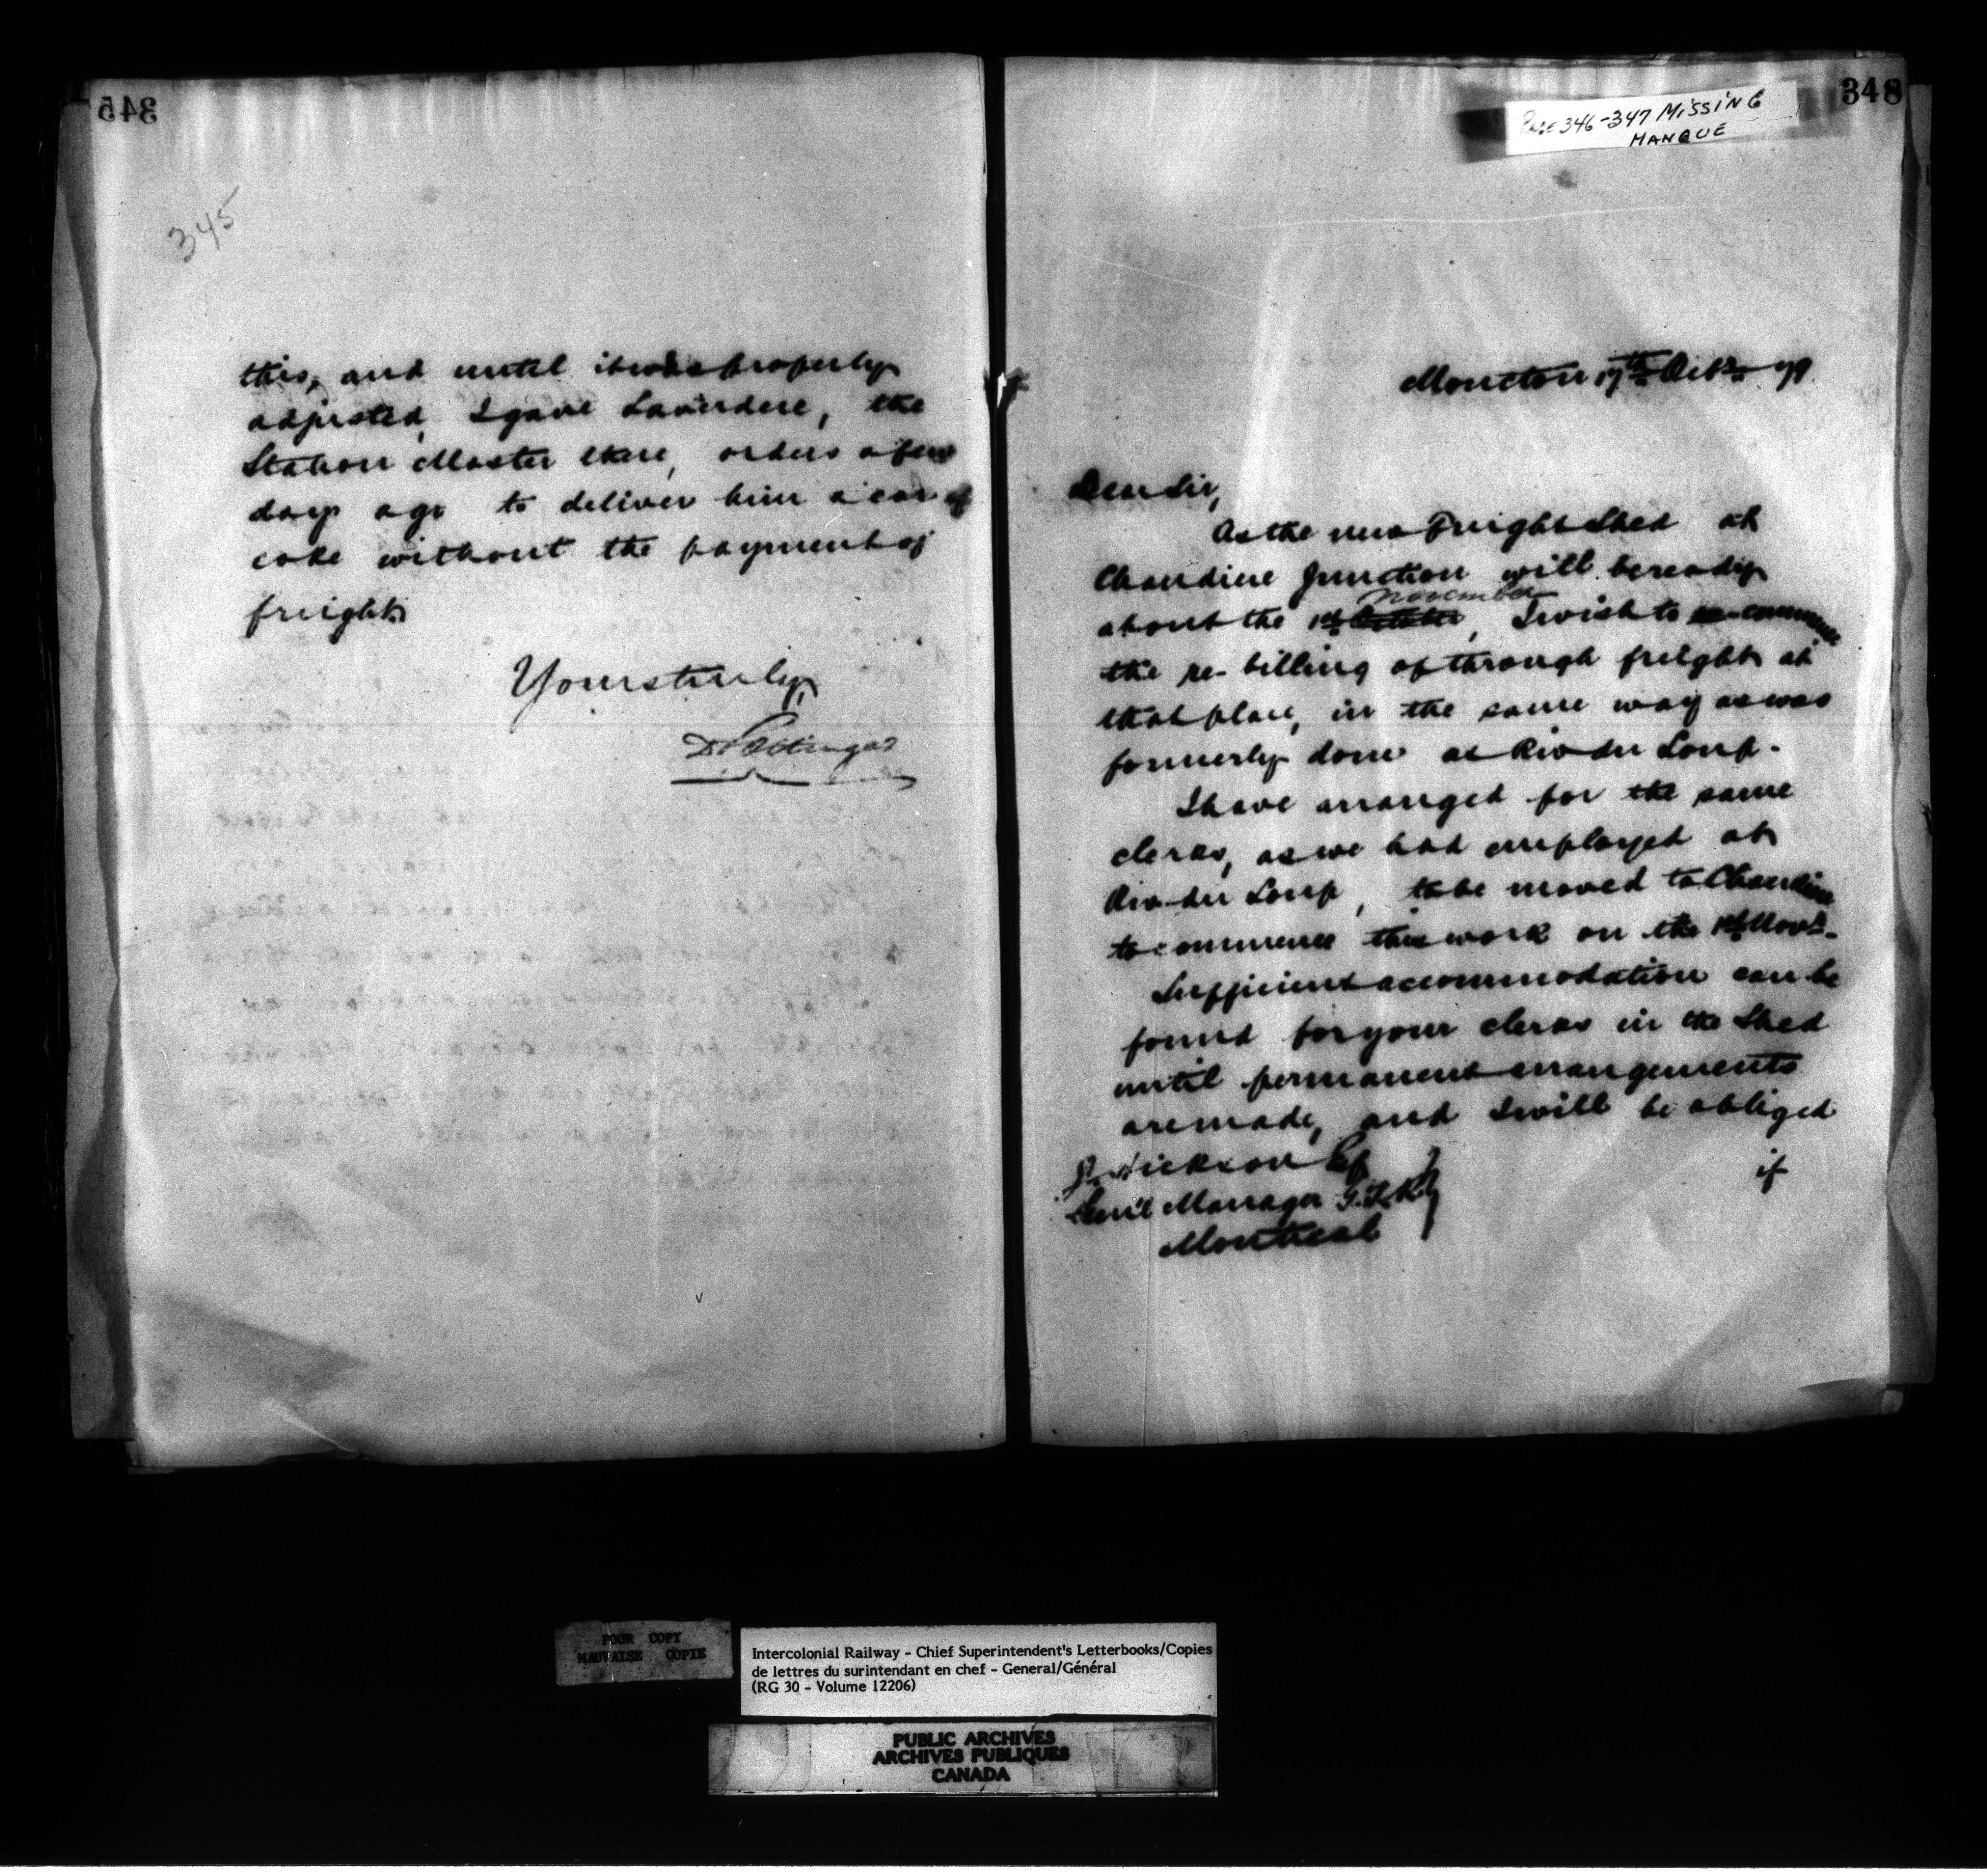 345
345
this, and until it was properly
adjusted, I gave Laverdere, the
Station Master there, orders a few
days ago to deliver him a car of
coke without the payment of
freight.
Yours truly,
D Pottinger
348
Page 346-347 MISSING
MANQUÉ
Moncton 17th Octr. 79.
Dear Sir,
As the new Freight Shed at
Chaudiere Junction will be ready
november
about the 1st October, I wish to re-commence
the re-billing of through freight at
that place, in the same way as was
formerly done at Riv du Loup.
I have arranged for the same
clerks, as we had employed at
Riv du Loup, to be moved to Chaudiere
to commence this work on the 1st Novr.
Sufficient accommodation can be
found for your clerks in the Shed
until permanent arrangements
are made, and I will be obliged
if
J. Hickson Esq
Gen'l Manager G.T.Ry
Montreal
POOR COPY
MAUVAISE COPIE
Intercolonial Railway - Chief Superintendent's Letterbooks/Copies
de lettres du surintendant en chef - General/Général
(RG 30 - Volume 12206)
PUBLIC ARCHIVES
ARCHIVES PUBLIQUES
CANADA